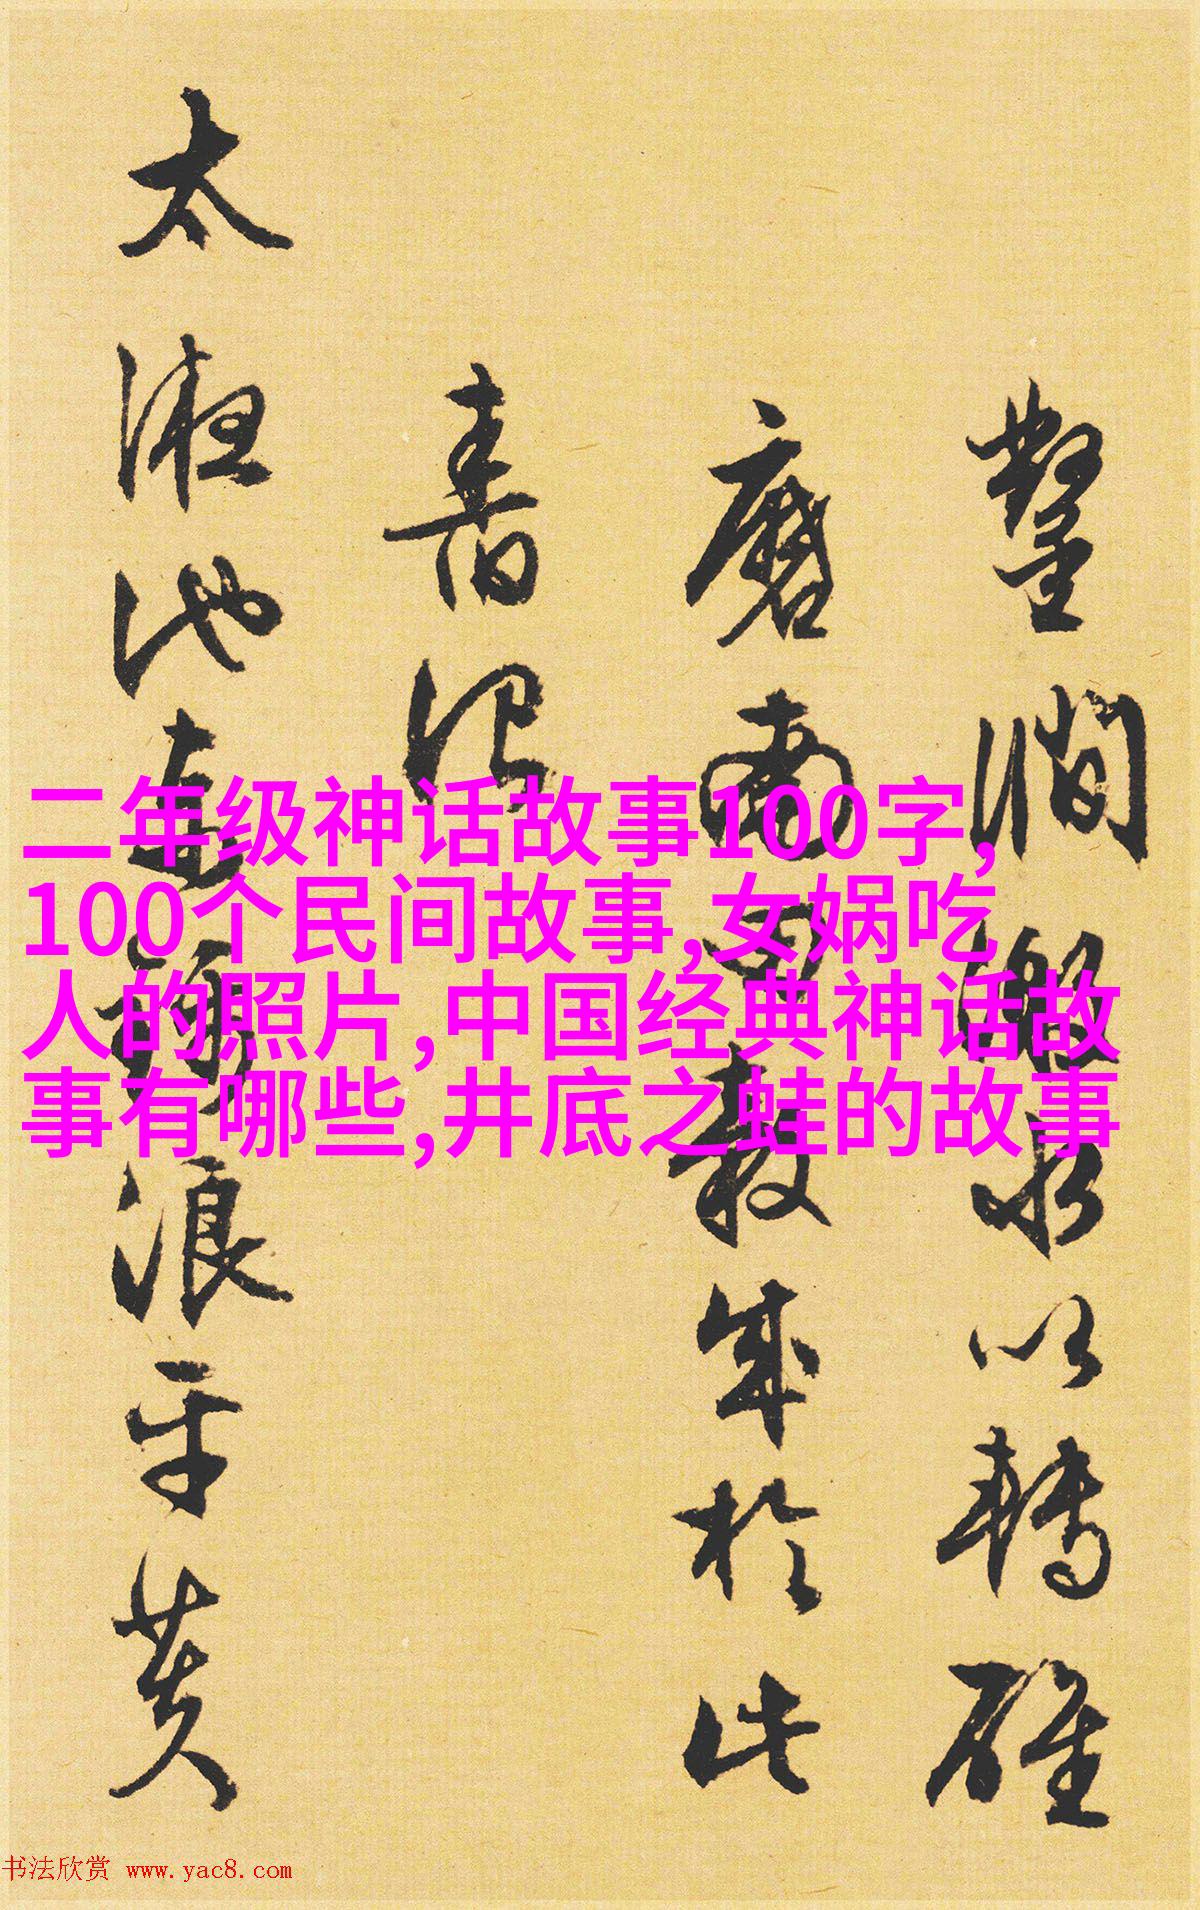 鑿澗激水以轉碓
磨南成於此
太液池邊浪平黄
二年级神话故事100字,
100个民间故事,女娲吃
人的照片,中国经典神话故
事有哪些,井底之蛙的故事
书法欣赏 www.yac8.com